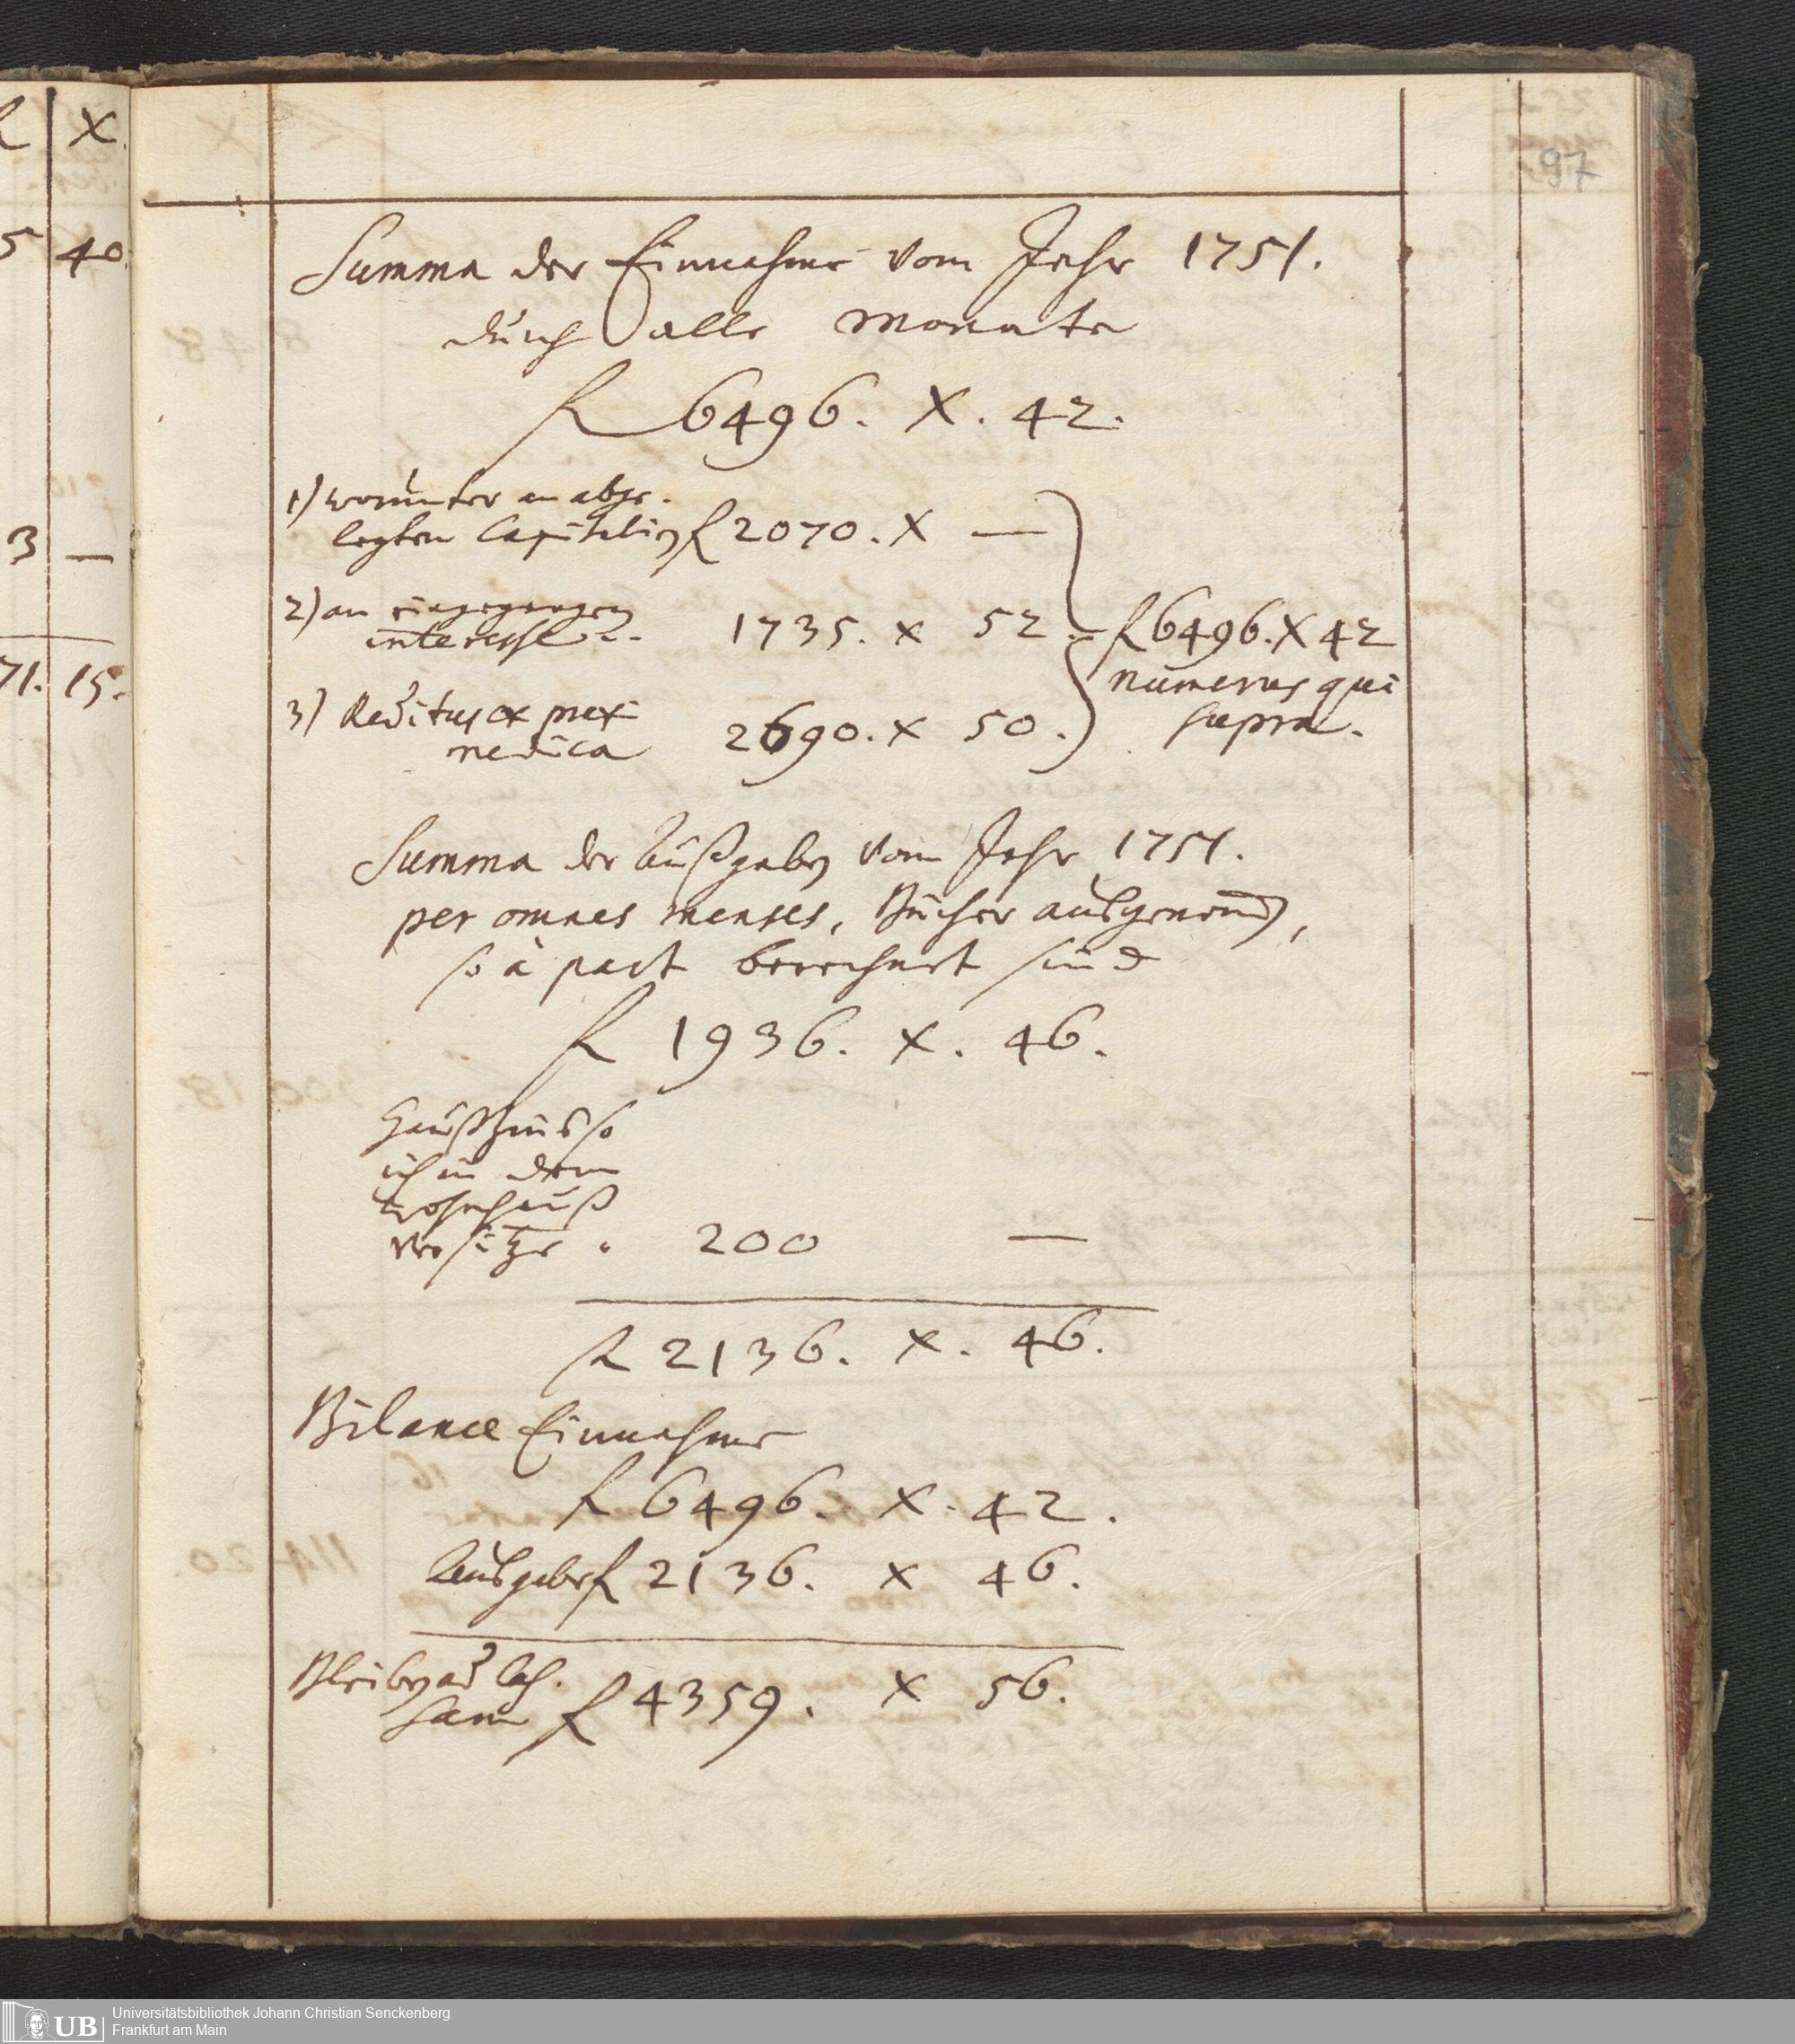 f X.
5 40.
3 —
71. 15.
97
Summa der Einnahme vom Jahr 1751.
durch alle Monate
f 6496. X. 42.
1) worunter an abge-
legten Capitalien f 2070. X —
2) an eingegangen
interesse 1735. x 52. f 6496. X 42
numerus qui
3) Reditus ex praxi
supra.
medica 2690. x 50.
Summa der Außgaben vom Jahr 1751.
per omnes menses, Bücher ausgenomen,
so à part berechnet sind
f 1936. x. 46.
Haußzinß so
ich in dem
wohnhauß
versitze. 200 —
f 2136. x. 46.
Bilance Einnahme
f 6496. x. 42.
Ausgabe f 2136. x 46.
Bleiben ad
f 4359. x 56.
UB Universitätsbibliothek Johann Christian Senckenberg
Frankfurt am Main